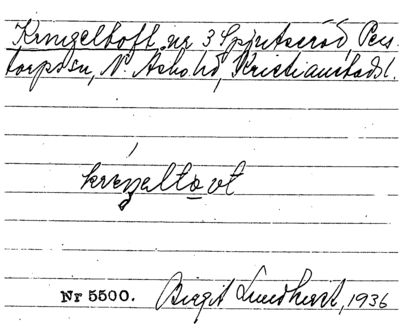 Kringeltoft nr 3 Spjutseröd, Pers-
torps sn, N. Åsbo hd, Kristianstads l.
kréŋæltωvt
Nr 5500. Birgit Lundkvist, 1936